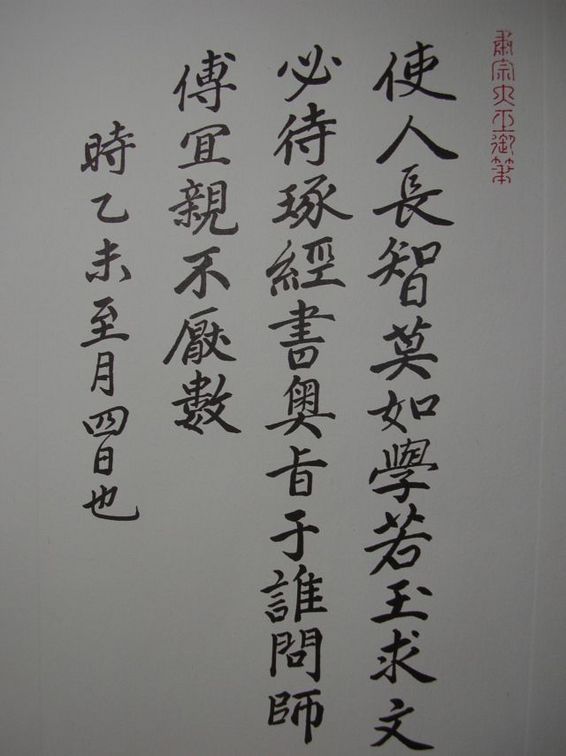 肅宗大王御筆
使人長智莫如學若玉求文
必待琢經書奧旨于誰問師
傅宜親不厭數
時乙未至月四日也